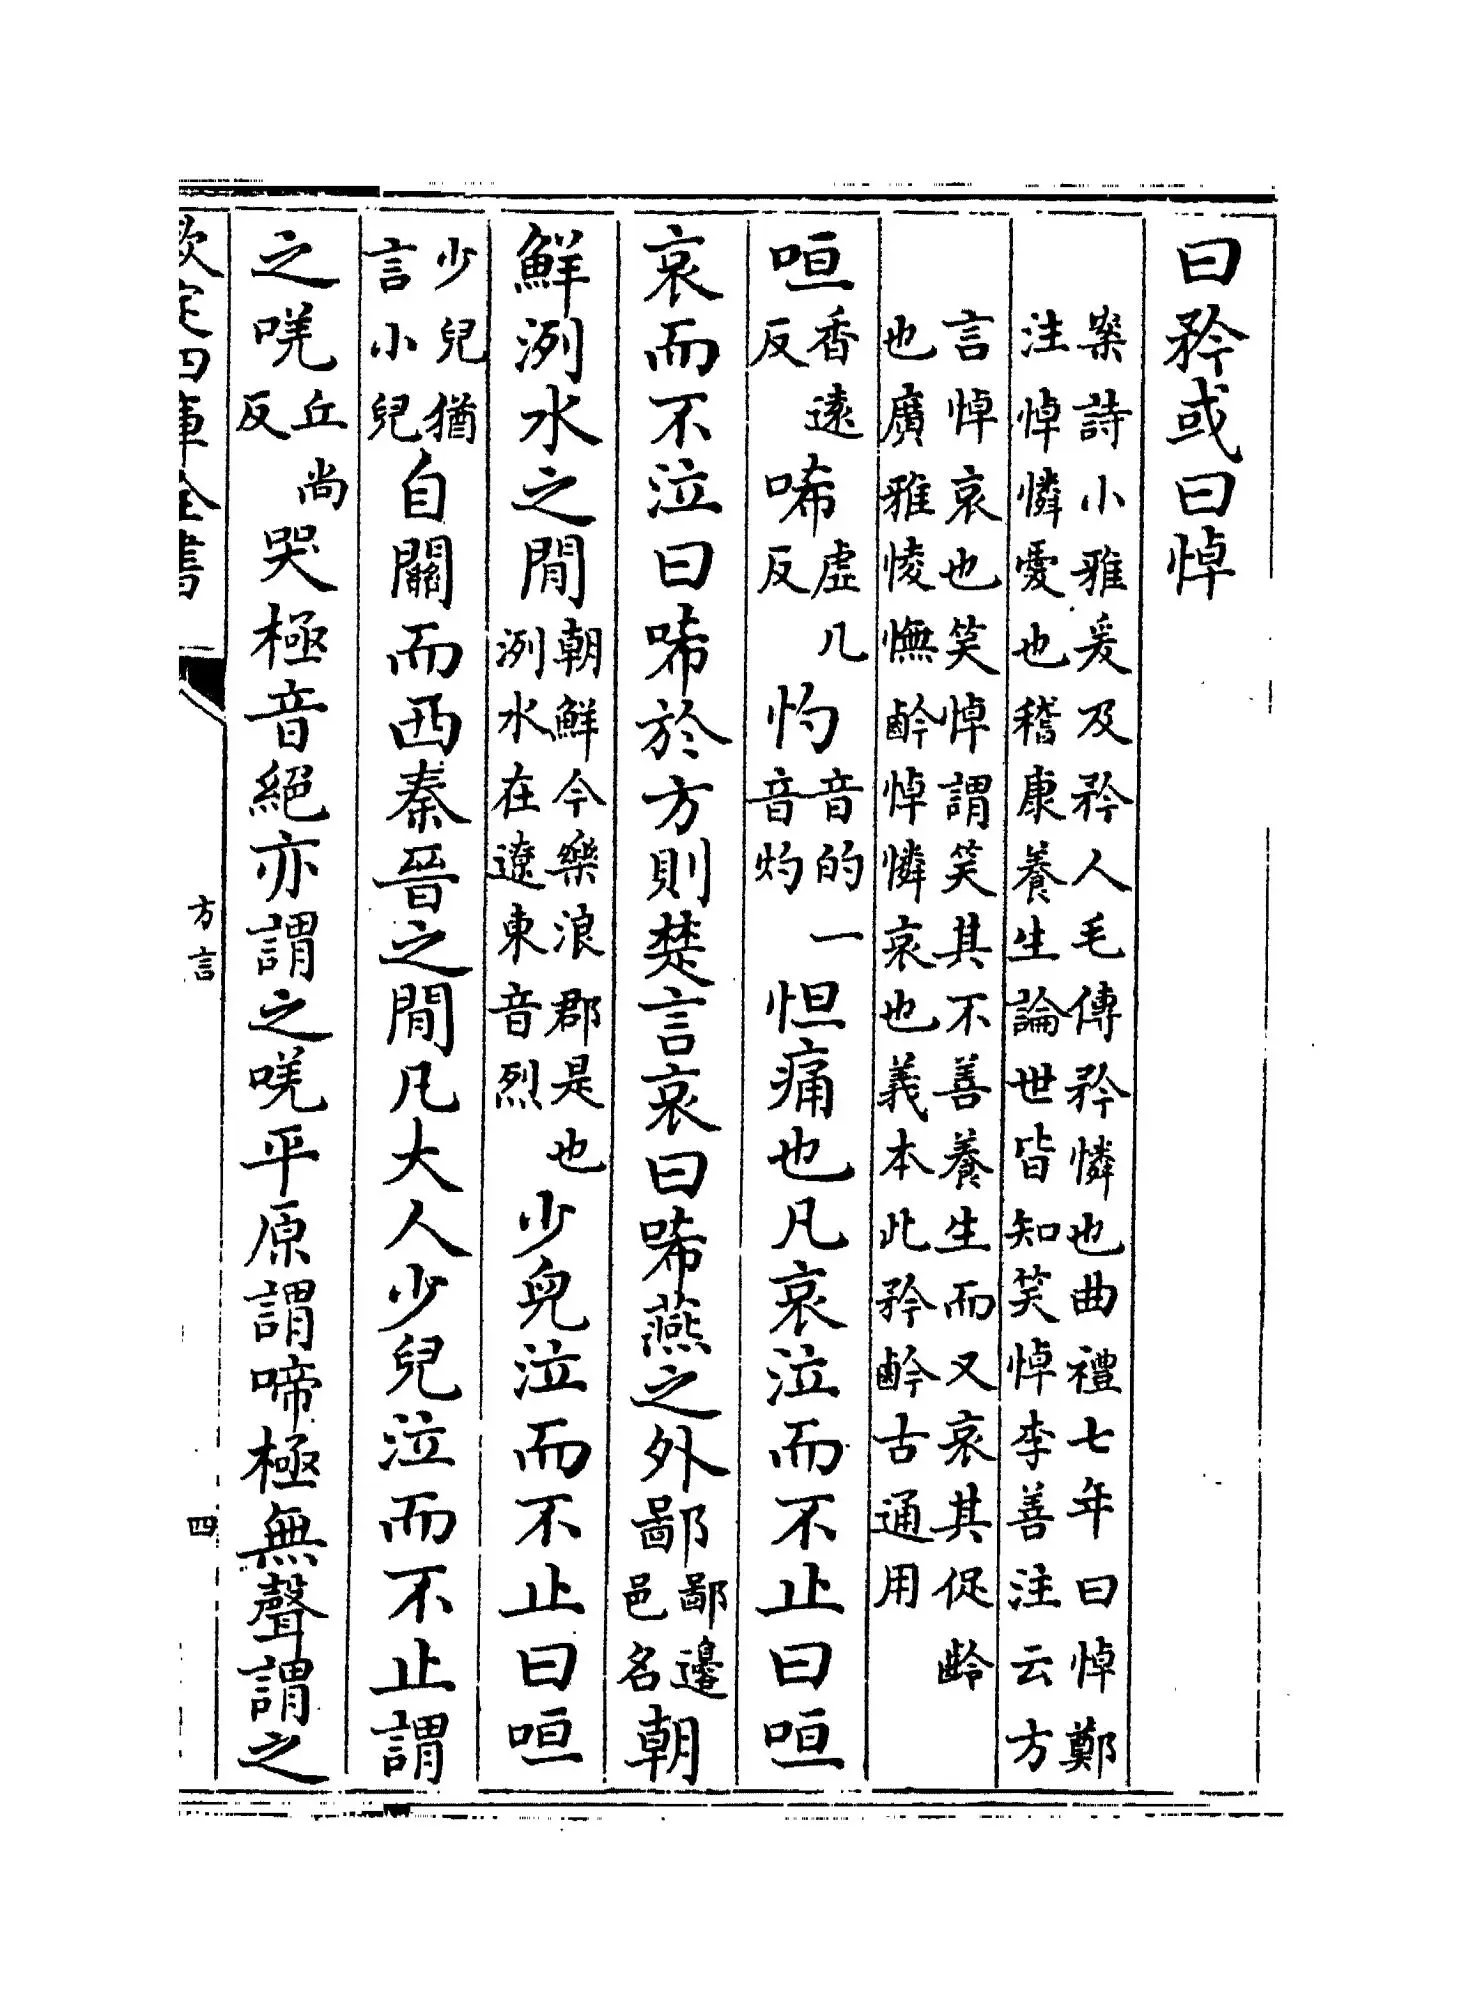 曰矜或曰悼
案詩小雅爰及矜人毛傳矜憐也曲禮七年曰悼鄭
注悼憐愛也稽康養生論世皆知笑悼李善注云方
言悼哀也笑悼謂笑其不善養生而又哀其促齡
也廣雅㥄憮鹶悼憐哀也義本此矜鹶古通用
咺香遠反唏虚几反㣿音的一音灼怛痛也凡哀泣而不止曰咺
哀而不泣曰唏於方則楚言哀曰唏燕之外鄙鄙邊邑名朝
鮮洌水之閒朝鮮今樂浪郡是也洌水在遼東音烈少兒泣而不止曰咺
少兒猶言小兒自關而西秦晉之閒凡大人少兒泣而不止謂
之嗴丘尚反哭極音絕亦謂之嗴平原謂啼極無聲謂之
欽定四庫全書
方言
四